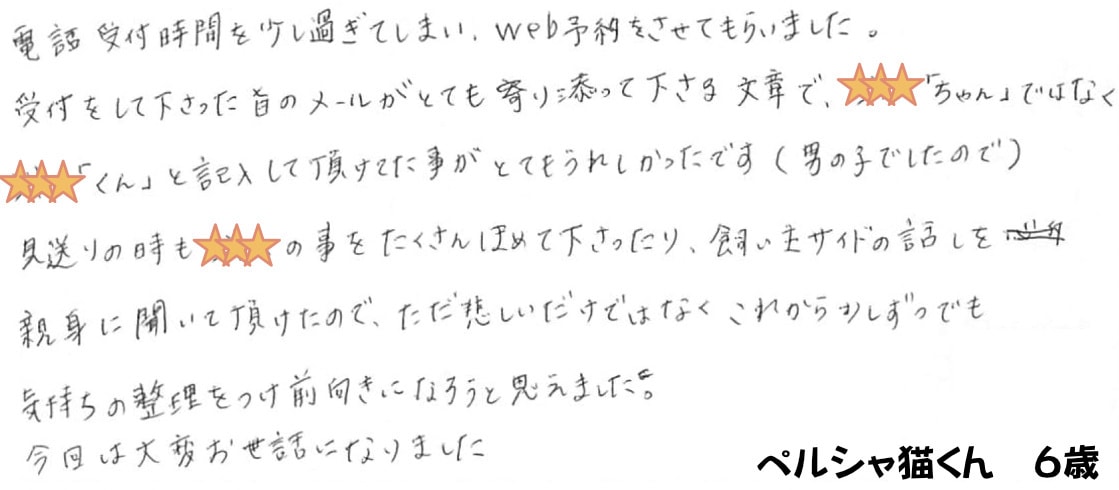 電話受付時間を少し過ぎてしまい、web予約をさせてもらいました。
受付をして下さった旨のメールがとても寄り添って下さる文章で、「ちゃん」ではなく
「くん」と記入して頂けてた事がとてもうれしかったです(男の子でしたので)
見送りの時も の事をたくさんほめて下さったり、飼い主サイドの話しを
親身に聞いて頂けたので、ただ悲しいだけではなくこれから少しずつでも
気持ちの整理をつけ前向きになろうと思えました。
今回は大変お世話になりました
ペルシャ猫くん 6歳